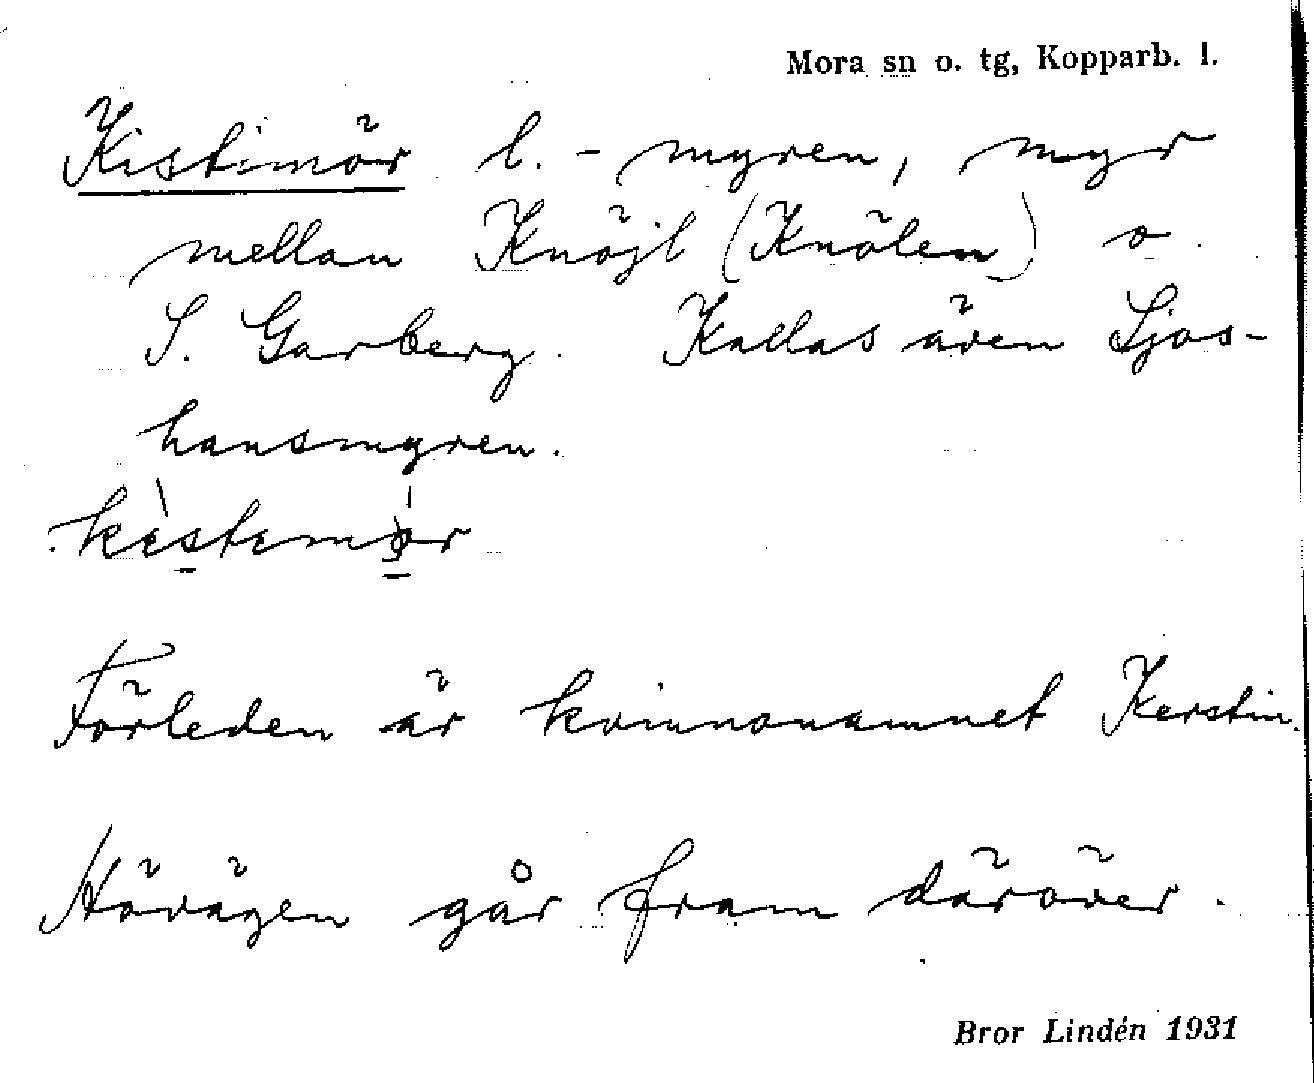 Mora sn o. tg, Kopparb. l.
Kistimör l. -myren, myr
mellan Knöjl (Knölen) o.
S. Garberg. Kallas även Ljos-
hansmyren.
Förleden är kvinnonamnet Kerstin.
Hövägen går fram däröver.
Bror Lindén 1931